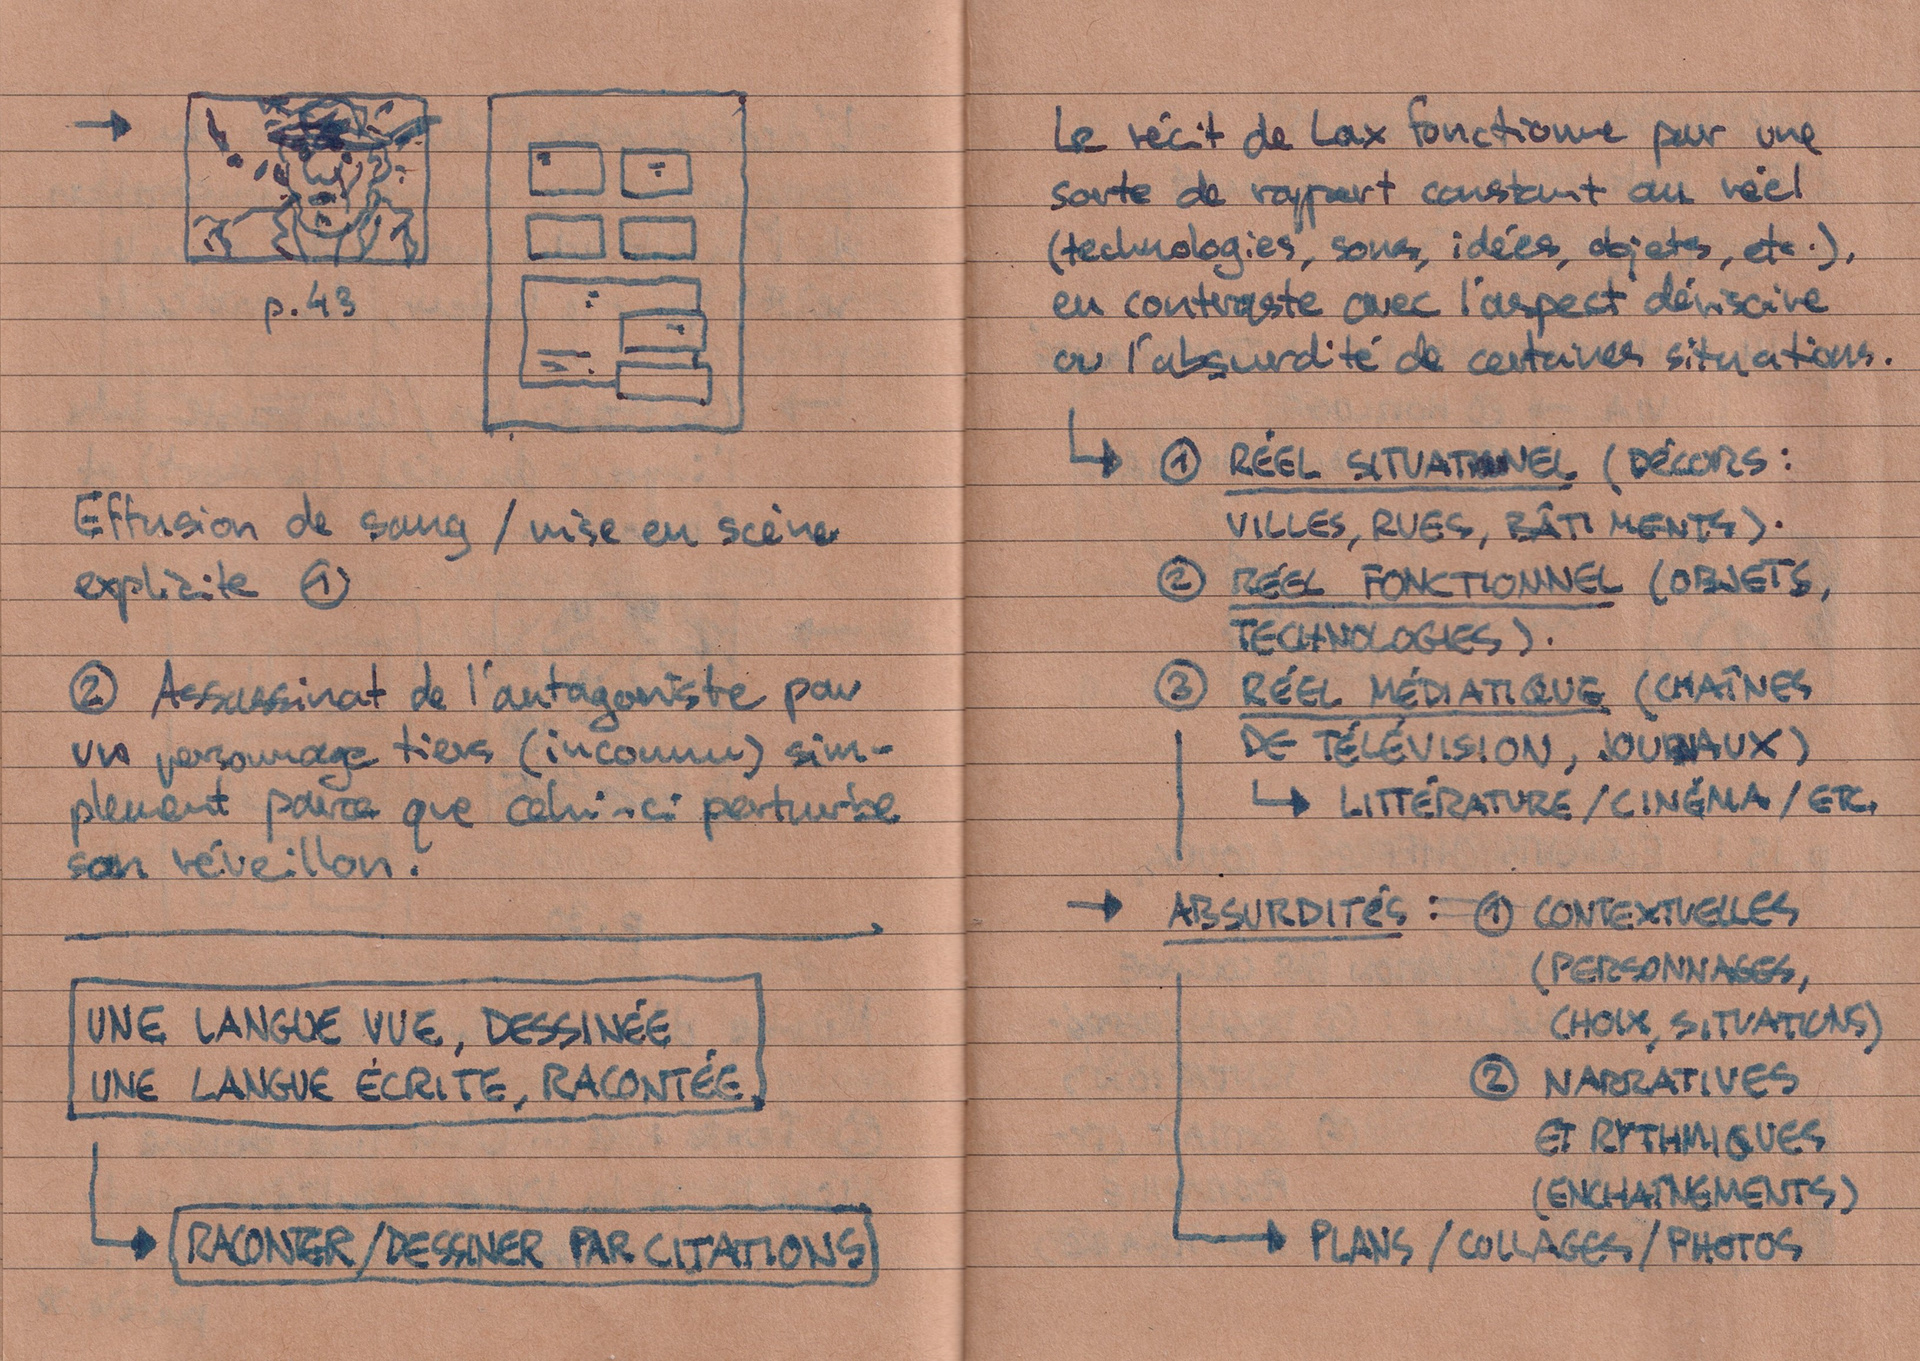 p.43
Effusion de sang / mise en scène
explicite ①
② Assassinat de l'antagoniste par
un personnage tiers (inconnu) sim-
plement parce que celui-ci perturbe
son réveillon.
UNE LANGUE VUE, DESSINÉE
UNE LANGUE ÉCRITE, RACONTÉE
RACONTER/DESSINER PAR CITATIONS
Le récit de Lax fonctionne par une
sorte de rapport constant au réel
(technologies, sons, idées, objets, etc.),
en contraste avec l'aspect
ou l'absurdité de certaines situations.
① RÉEL SITUATIONNEL (DÉCORS :
VILLES, RUES, BÂTIMENTS).
② RÉEL FONCTIONNEL (OBJETS,
TECHNOLOGIES).
③ RÉEL MÉDIATIQUE (CHAÎNES
DE TÉLÉVISION, JOURNAUX)
LITTÉRATURE/CINÉMA/ETC.
ABSURDITÉS : ① CONTEXTUELLES
(PERSONNAGES,
CHOIX, SITUATIONS)
② NARRATIVES
ET RYTHMIQUES
(ENCHAÎNEMENTS)
PLANS / COLLAGES / PHOTOS